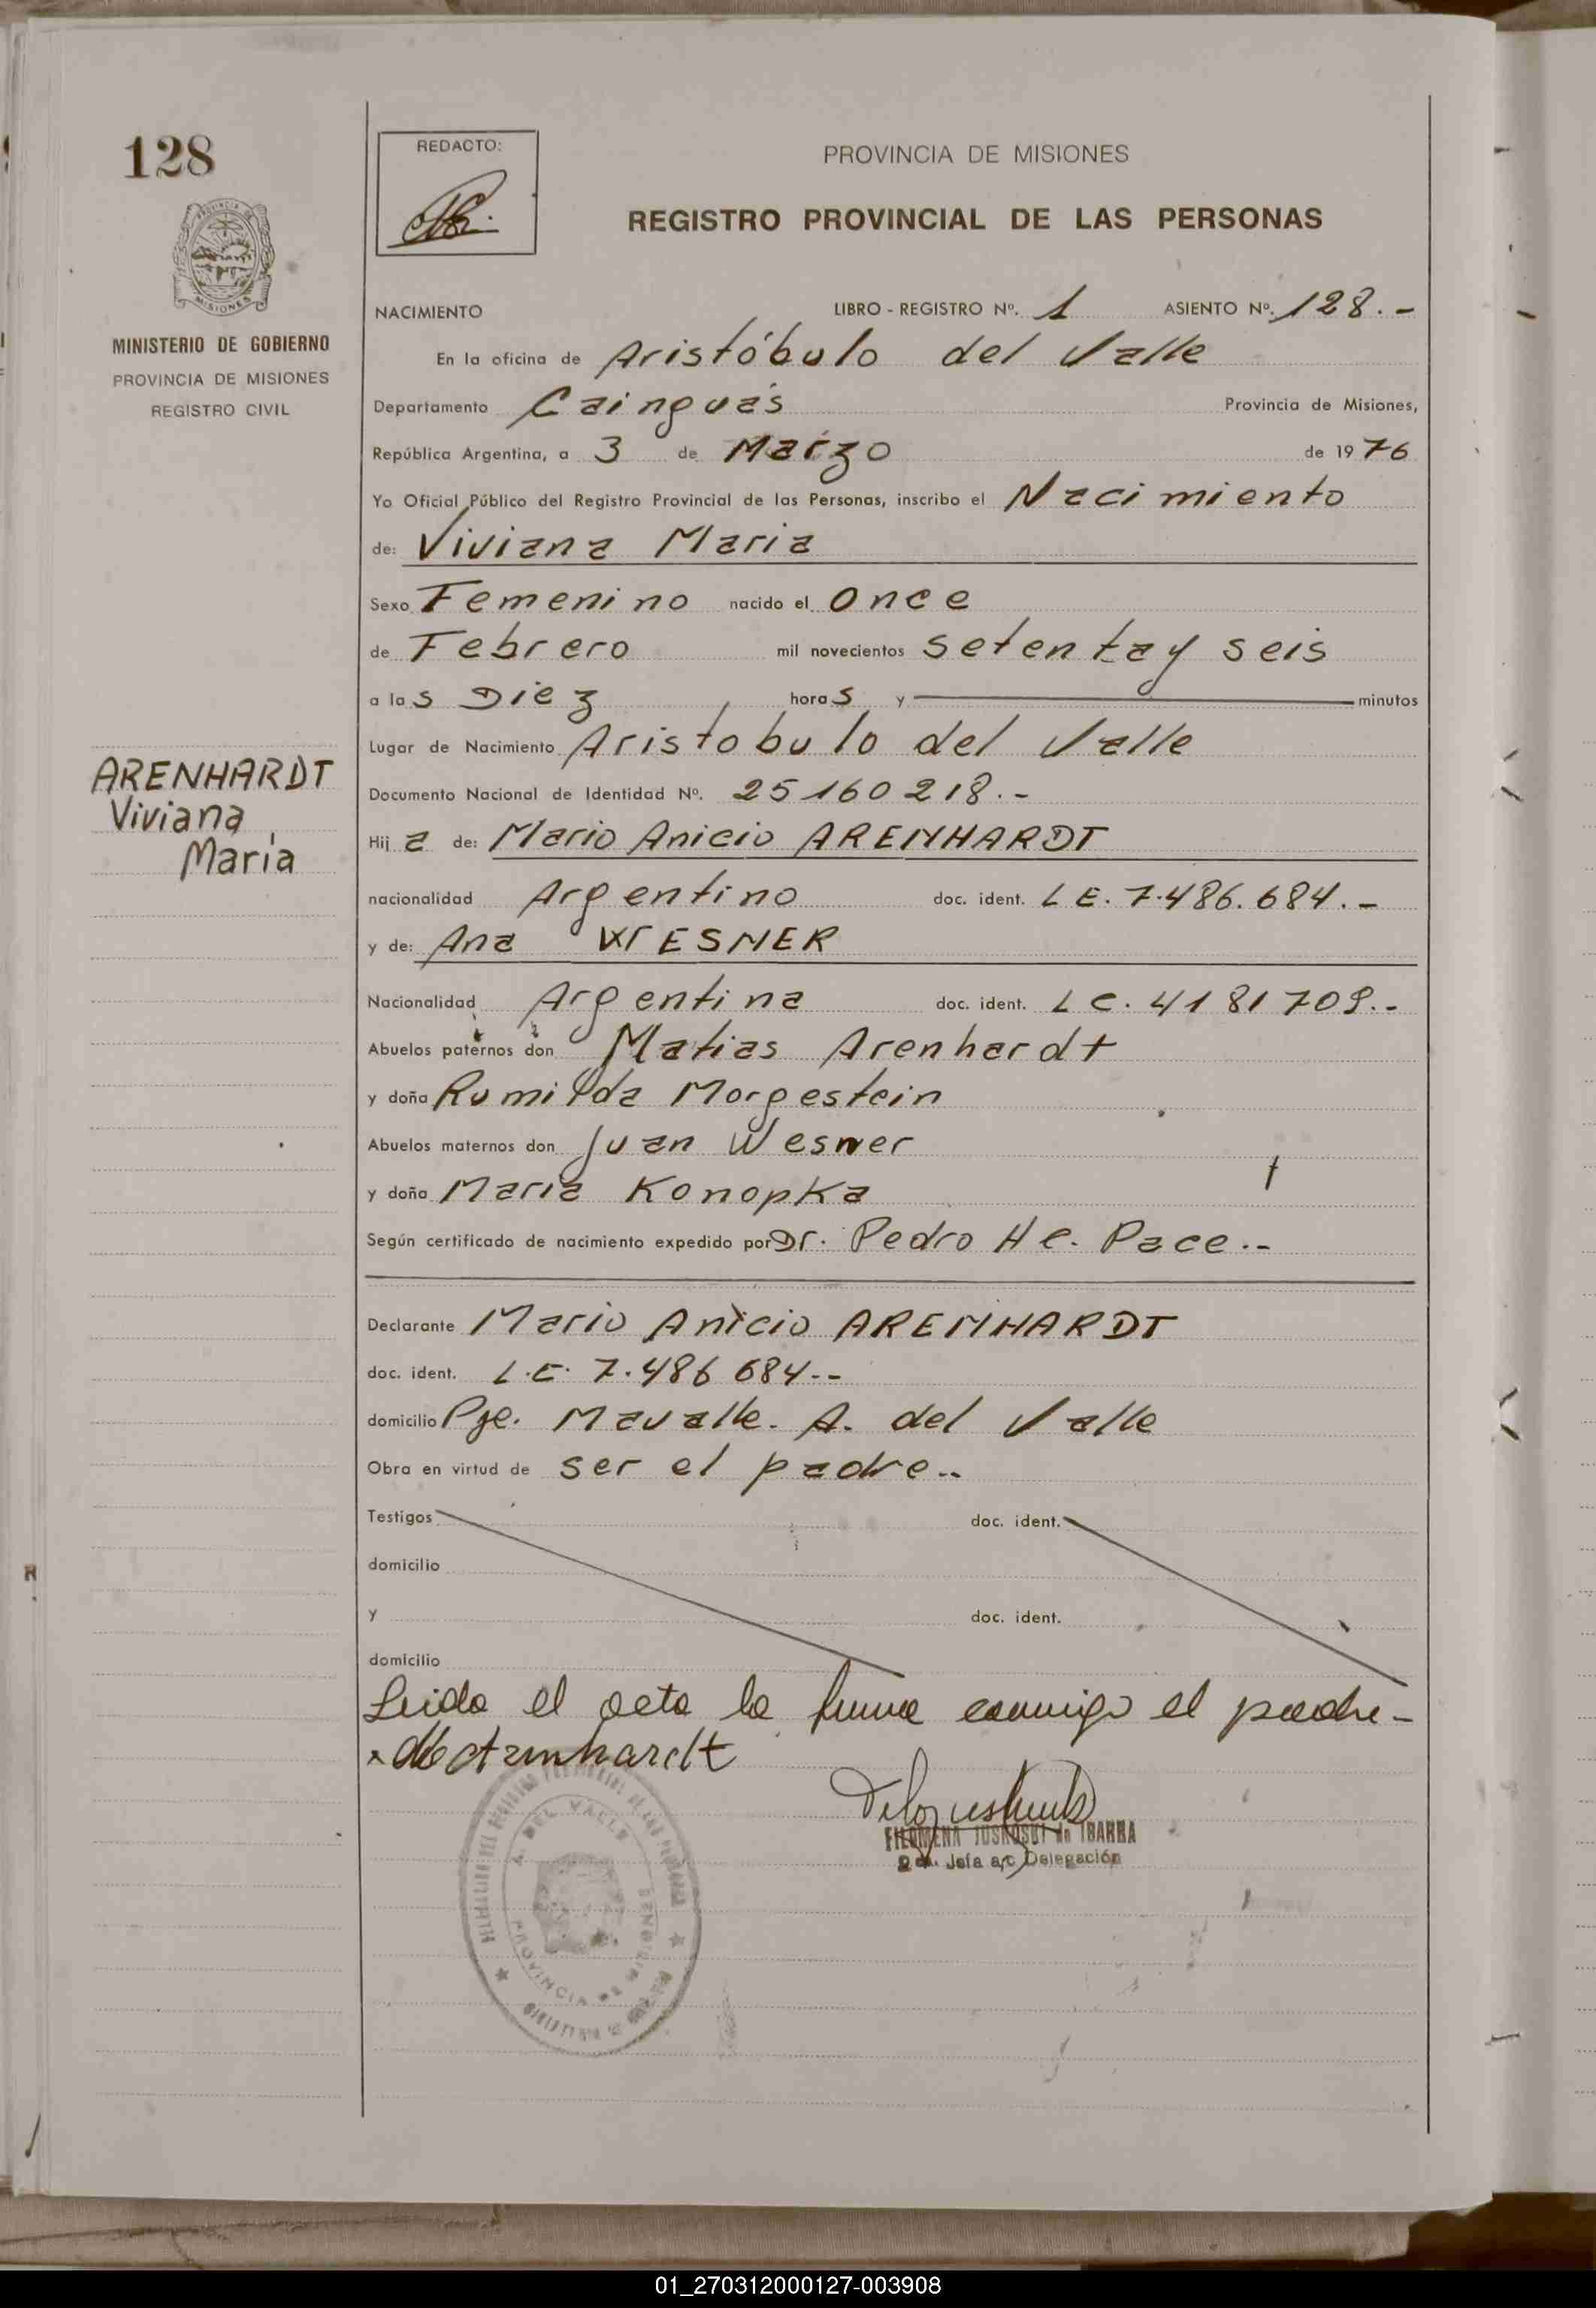 128
REDACTO:
PROVINCIA DE MISIONES
REGISTRO PROVINCIAL DE LAS PERSONAS
MISIONES
MINISTERIO DE GOBIERNO
PROVINCIA DE MISIONES
REGISTRO CIVIL
NACIMIENTO LIBRO - REGISTRO Nº. 1 ASIENTO Nº. 128.-
En la oficina de Aristóbulo del Valle
Departamento Cainguás Provincia de Misiones,
República Argentina, a 3 de Marzo de 1976
Yo Oficial Público del Registro Provincial de las Personas, inscribo el Nacimiento
de: Viviana Maria
Sexo Femenino nacido el Once
de Febrero mil novecientos setenta y seis
a las Diez horas y minutos
Lugar de Nacimiento Aristobulo del Valle
Documento Nacional de Identidad Nº. 25160218.-
ARENHARDT
Viviana
María
Hija de: Mario Anicio ARENHARDT
nacionalidad Argentino doc. ident. L E. 7.486.684.-
y de: Ana WESNER
Nacionalidad Argentina doc. ident. L C. 4181709.-
Abuelos paternos don Matias Arenhardt
y doña Romilda Morgestein
Abuelos maternos don Juan Wesner
y doña Maria Konopka
Según certificado de nacimiento expedido por Dr. Pedro He. Pace.-
Declarante Mario Anicio ARENHARDT
doc. ident. L.E. 7.486 684.-
domicilio Pje. Mavalle. A. del Valle
Obra en virtud de ser el padre..
Testigos doc. ident.
domicilio
y doc. ident.
domicilio
Leida el acta la firma conmigo el padre-
Arenhardt
de IBARRA
2da. Jefa a/c Delegación
A. DEL VALLE
PROVINCIA DE MISIONES
01_270312000127-003908